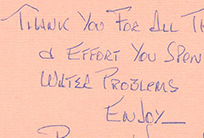 THANK YOU FOR ALL
& EFFORT YOU SPEN
WATER PROBLEMS
ENJOY